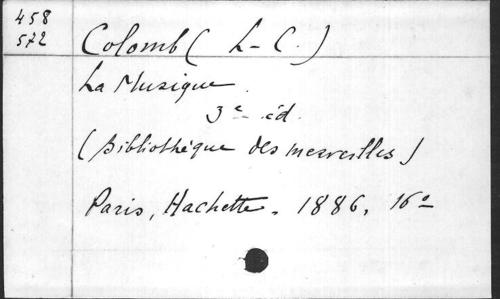 458
572
Colomb ( L-C. )
La Musique.
3e éd.
(Bibliothèque des merveilles)
Paris, Hachette. 1886, 16o